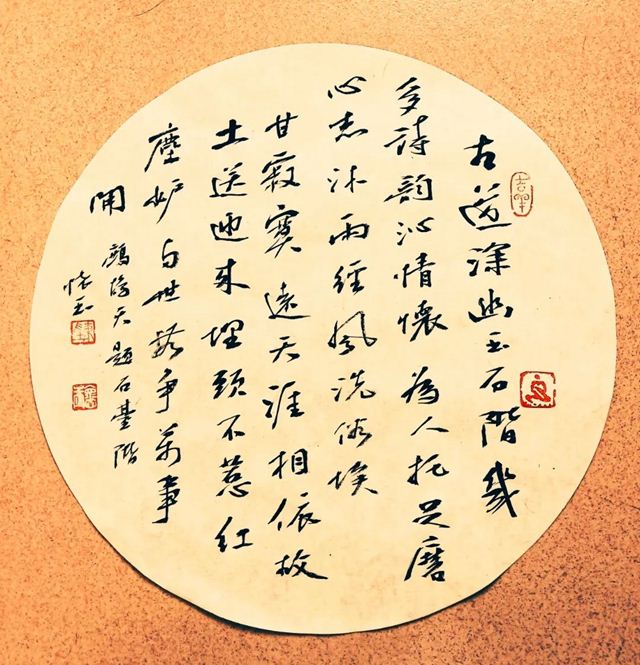 古道深幽玉石階幾
多詩韻沁情懷為人托足磨
心志沐雨經風洗俗埃
甘寂寞遠天涯相依故
土送迎來埋頭不惹紅
塵妒与世無爭萬事
開
鷓鴣天題石臺階
懷玉